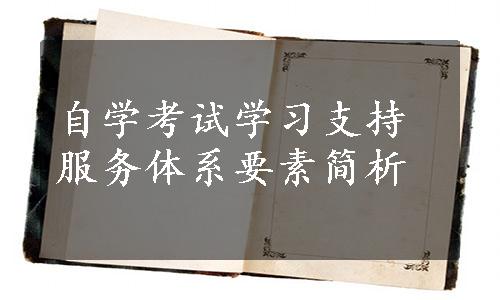 自学考试学习支持
服务体系要素简析